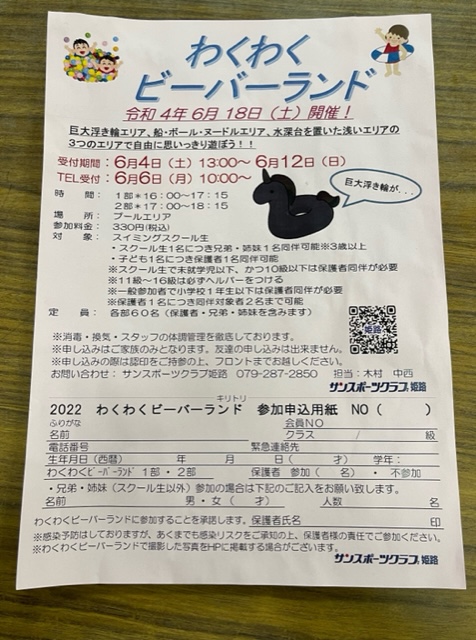 わくわく
ビーバーランド
令和4年6月18日(土)開催!
巨大浮き輪エリア、船・ボール・ヌードルエリア、水深台を置いた浅いエリアの
3つのエリアで自由に思いっきり遊ぼう!!
受付期間:6月4日(土)13:00~6月12日(日)
TEL受付:6月6日(月)10:00~
巨大浮き輪が、、
時 間: 1部*16:00~17:15
2部*17:00~18:15
場 所: プールエリア
参加料金: 330円(税込)
対 象: スイミングスクール生
・スクール生1名につき兄弟・姉妹1名同伴可能※3歳以上
・子ども1名につき保護者1名同伴可能
※スクール生で未就学児以下、かつ10級以下は保護者同伴が必要
※11級~16級は必ずヘルパーをつける
※一般参加者で小学校1年生以下は保護者同伴が必要
※保護者1名につき同伴対象者2名まで可能
定 員: 各部60名(保護者・兄弟・姉妹を含みます)
姫路
※消毒・換気・スタッフの体調管理を徹底しております。
※申し込みはご家族のみとなります。友達の申し込みは出来ません。
※申し込みの際は認印をご持参の上、フロントまでお越しください。
お問い合わせ: サンスポーツクラブ姫路 079-287-2850 担当:木村 中西
サンスポーツクラブ姫路
キリトリ
2022 わくわくビーバーランド 参加申込用紙 NO( )
ふりがな 会員NO
名前 クラス / 級
電話番号 緊急連絡先
生年月日(西暦) 年 月 日( 才) 学年:
わくわくビーバーランド 1部・2部 保護者 参加( 名) ・ 不参加
・兄弟・姉妹(スクール生以外)参加の場合は下記のご記入をお願い致します。
名前 男・女( 才) 人数 名
わくわくビーバーランドに参加することを承諾します。保護者氏名 印
※感染予防はしておりますが、あくまでも感染リスクをご承知の上、保護者様の責任でご参加ください。
※わくわくビーバーランドで撮影した写真をHPに掲載する場合がございます。
サンスポーツクラブ姫路